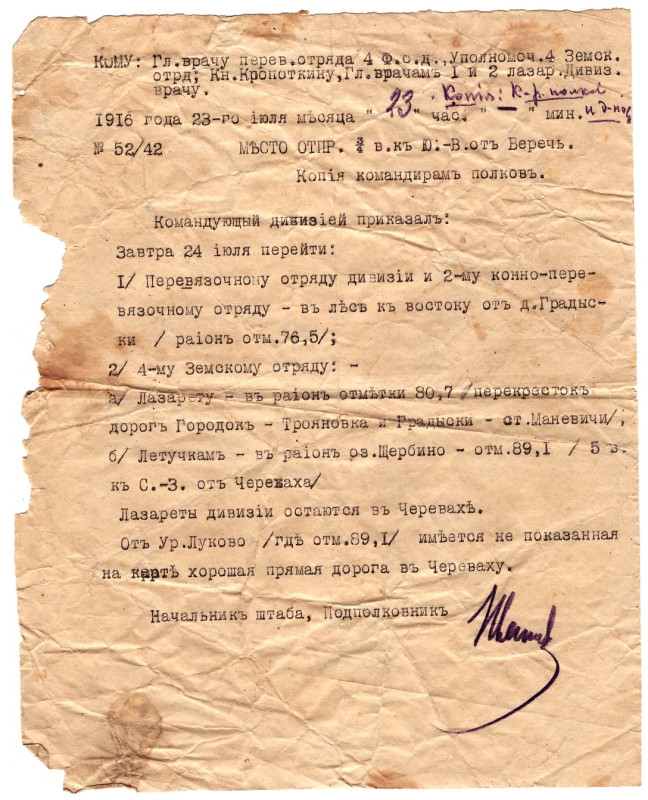 КОМУ: Гл.врачу перев.отряда 4 Ф.с.д.,Уполномоч.4 Земск.
отрд; Кн.Кропоткину,Гл.врачамъ I и 2 лазар.Дивиз.
врачу. Копія: К-р. полков
1916 года 23-го іюля мѣсяца " 23 " час. " " мин.
№ 52/42 МѢСТО ОТПР. ¾ в.къ Ю:-В.отъ Беречь.
Копія командирамъ полковъ.
Командующый дивизіей приказалъ:
Завтра 24 іюля перейти:
I/ Перевязочному отряду дивизіи и 2-му конно-пере-
вязочному отряду - въ лѣсѣ къ востоку отъ д.Градыс-
ки / раіонъ отм.76,5/;
2/ 4-му Земскому отряду: -
а/ Лазарету - въ раіонъ отмѣтки 80,7 /перекрестокъ
дорогъ Городокъ - Трояновка и Градыски - ст.Маневичи/,
б/ Летучкамъ - въ раіонъ оз.Щербино - отм.89,I / 5 в.
къ С.-З. отъ Череваха/
Лазареты дивизіи остаются въ Черевахѣ.
Отъ Ур.Луково /гдѣ отм.89,I/ имѣется не показанная
на картѣ хорошая прямая дорога въ Череваху.
Начальникъ штаба, Подполковникъ